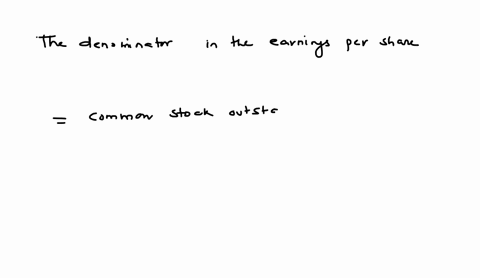 The denominator in the earnings per share
= common stock outsta